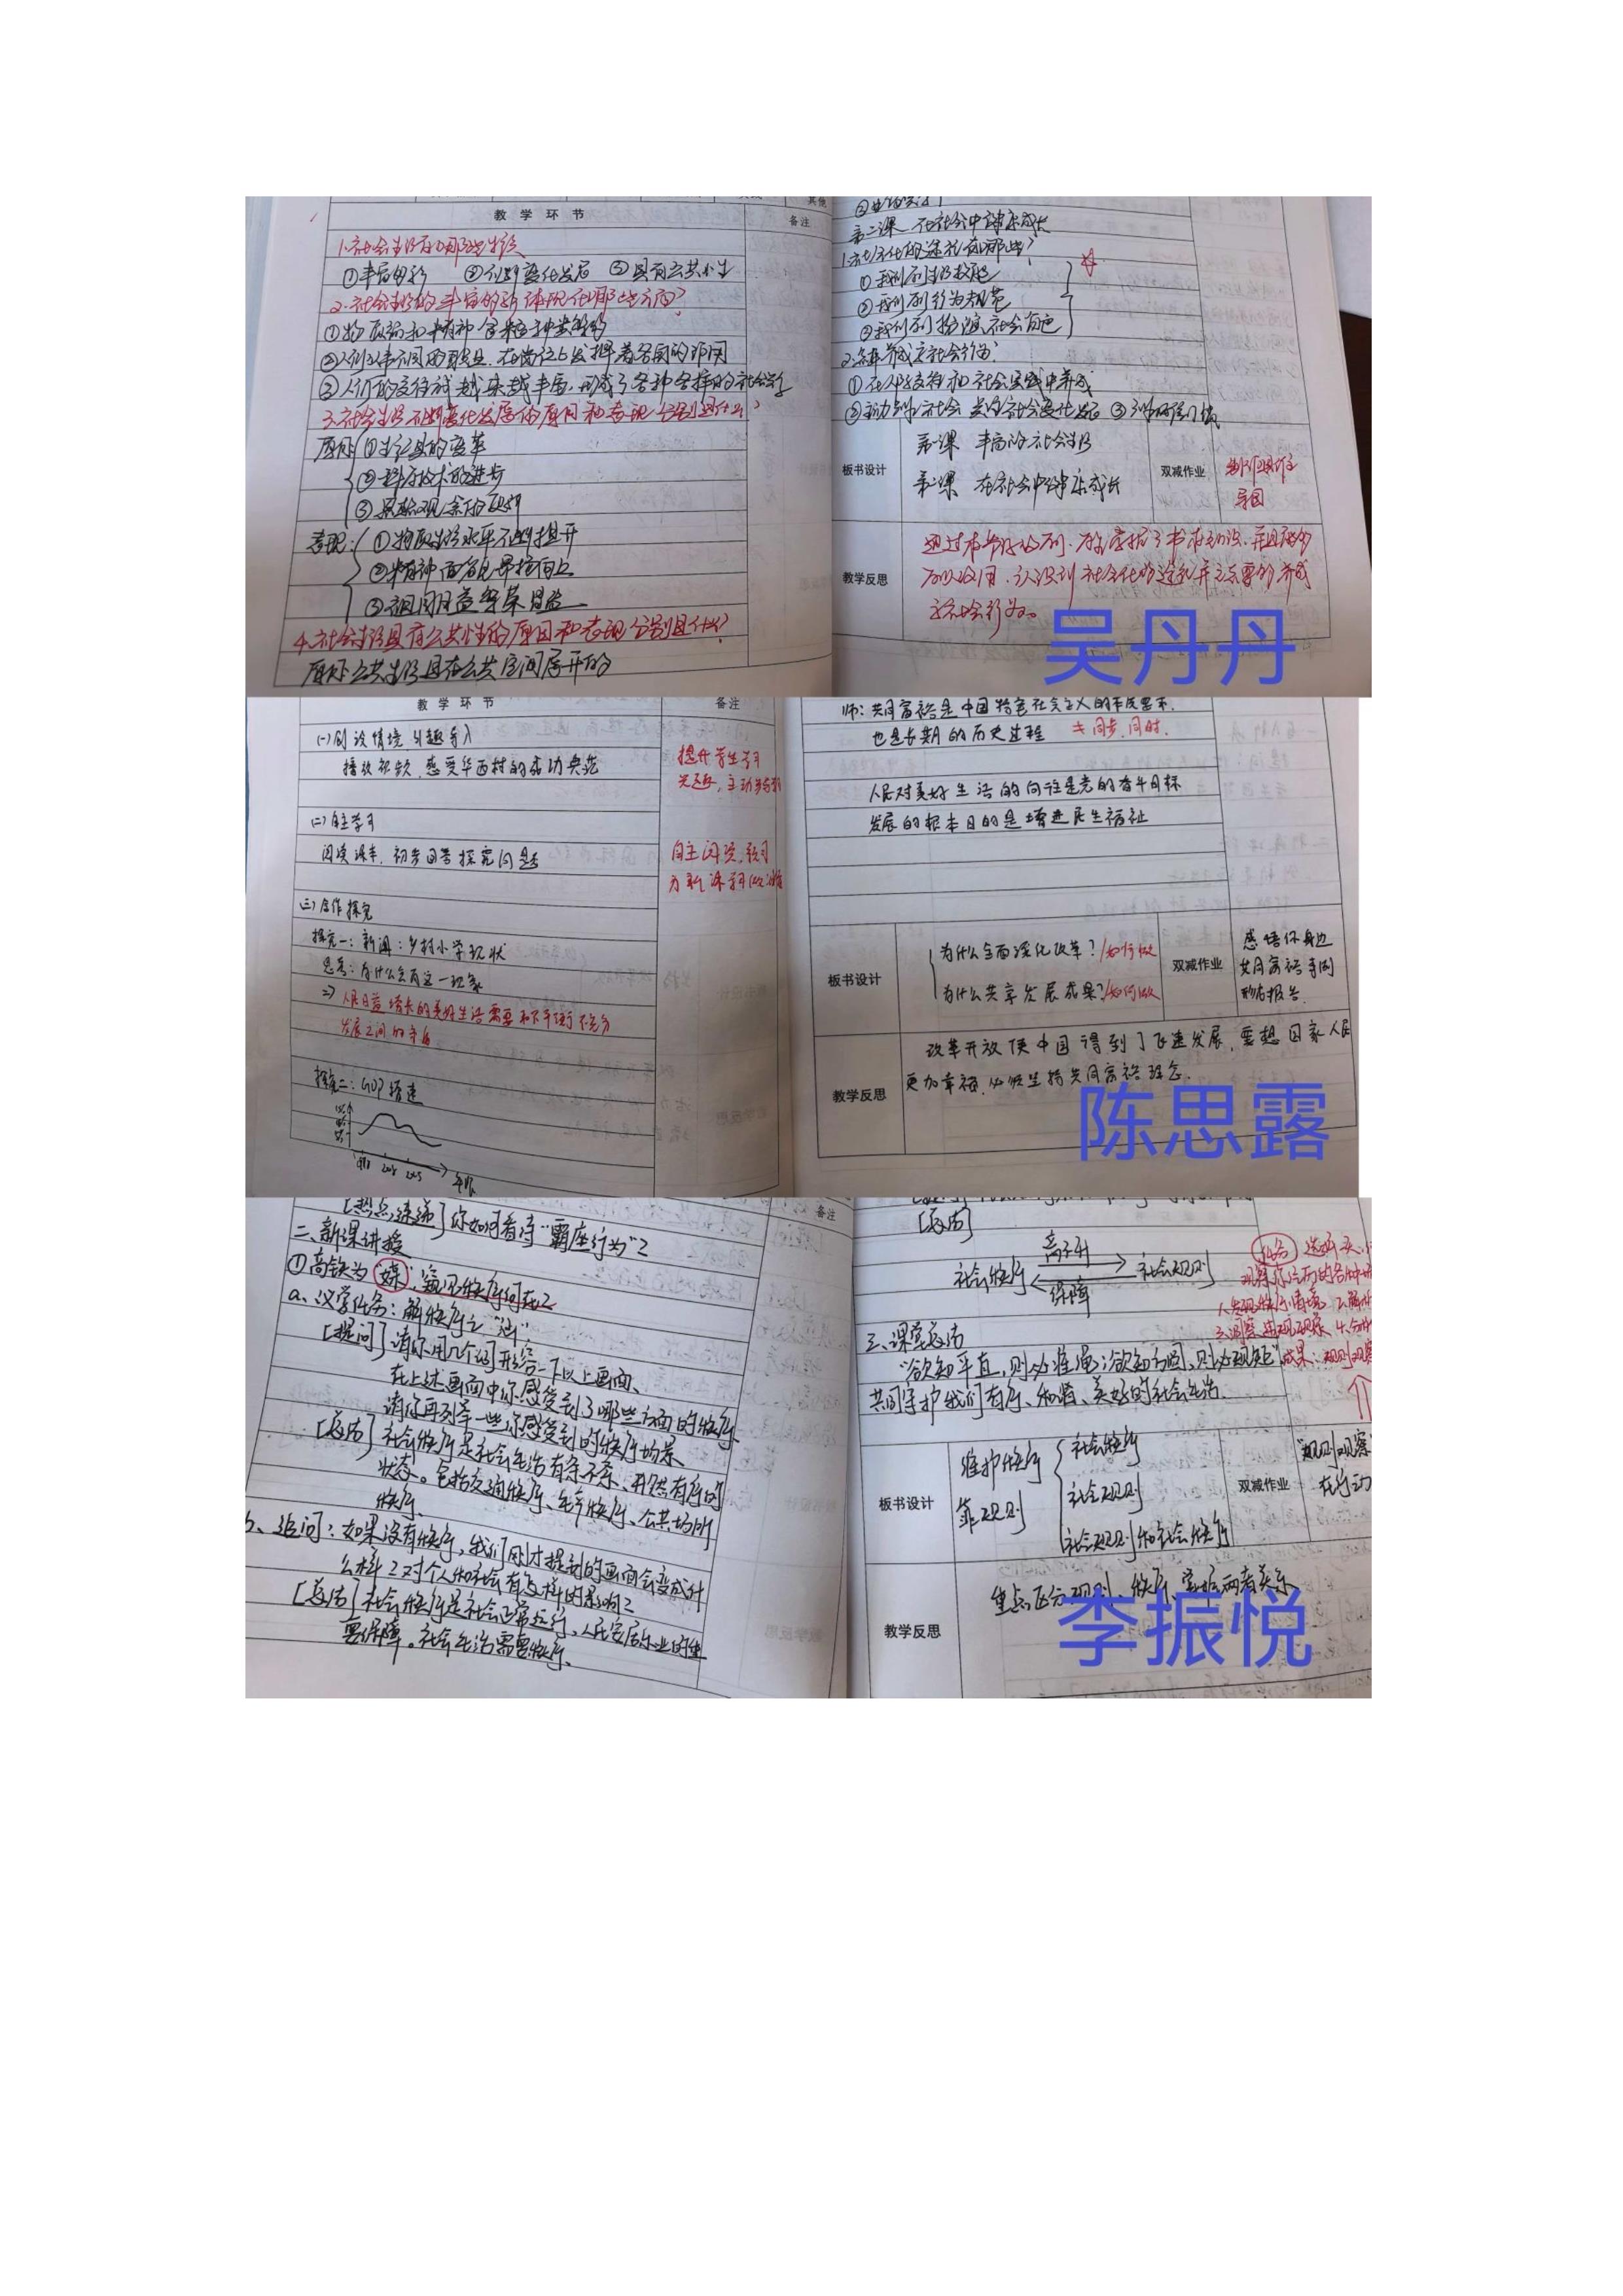 教学环节
备注
其他
1.社会生活有哪些
①丰富多彩 ②不断变化发展 ③具有公共性
2.社会生活的丰富多彩体现在哪些方面？
①物质和精神
②人们从事不同的职业，在岗位上发挥着各自的作用
③人们的交往越来越丰富，形成了各种各样的社会
3.社会生活不断变化发展的原因和表现分别是什么？
原因①生产的变革
②科学技术的进步
③思想观念的更新
表现：①物质生活水平不断提升
②精神面貌昂扬向上
③祖国日益繁荣昌盛
4.社会生活具有公共性的原因和表现分别是什么？
原因：公共生活是在公共空间展开的
第二课 在社会中健康成长
1.社会化的途径有哪些？
①我们学习生活技能
②我们学习行为规范
③我们学习扮演社会角色
2.怎样养成亲社会行为？
①在人际交往和社会实践中养成
②主动了解社会 关注社会变化发展 ③
板书设计
第一课 丰富的社会生活
第二课 在社会中健康成长
双减作业
导图
教学反思
吴丹丹
教学环节
备注
(一)创设情境 引趣导入
播放视频，感受华西村的成功典范
提升学生学习
兴趣，主动参与
(二)自主学习
阅读课本，初步回答探究问题
自主阅读，预习
为新课学习做准备
(三)合作探究
探究一：新闻：乡村小学现状
思考：为什么会有这一现象
=>人民日益增长的美好生活需要和不平衡不充分
发展之间的矛盾
探究二：GDP增速
年份
师：共同富裕是中国特色社会主义的本质要求，
也是长期的历史过程 ≠同步，同时.
人民对美好生活的向往是党的奋斗目标
发展的根本目的是增进民生福祉
板书设计
为什么全面深化改革？/如何做
为什么共享发展成果？/如何做
双减作业
感悟你身边
共同富裕事例
形成报告.
教学反思
改革开放使中国得到了飞速发展，要想国家人民
更加幸福，必须坚持共同富裕理念.
陈思露
备注
[热点连线]你如何看待“霸座行为”？
二、新课讲授
①高铁为媒，窥见秩序何在？
a、议学任务：解秩序之“谜”
[提问]请你用几个词形容一下以上画面、
在上述画面中你感受到了哪些方面的秩序、
请你再列举一些你感受到的秩序场景
[总结]社会秩序是社会生活有条不紊、井然有序的
状态。包括交通秩序、生产秩序、公共场所
秩序、
b、追问：如果没有秩序，我们刚才提到的画面会变成什
么样？对个人和社会有怎样的影响？
[总结]社会秩序是社会正常运行、人民安居乐业的重
要保障。社会生活需要秩序、
[总结]
离不开
社会秩序 社会规则
保障
三、课堂总结
“欲知平直，则必准绳；欲知方圆，则必规矩”
共同守护我们有序、和谐、美好的社会生活.
任务
成果：规则观察
板书设计
维护秩序
靠规则
社会秩序
社会规则
社会规则和社会秩序
双减作业
“规则观察
在行动
教学反思
重点区分规则、秩序，掌握两者关系
李振悦